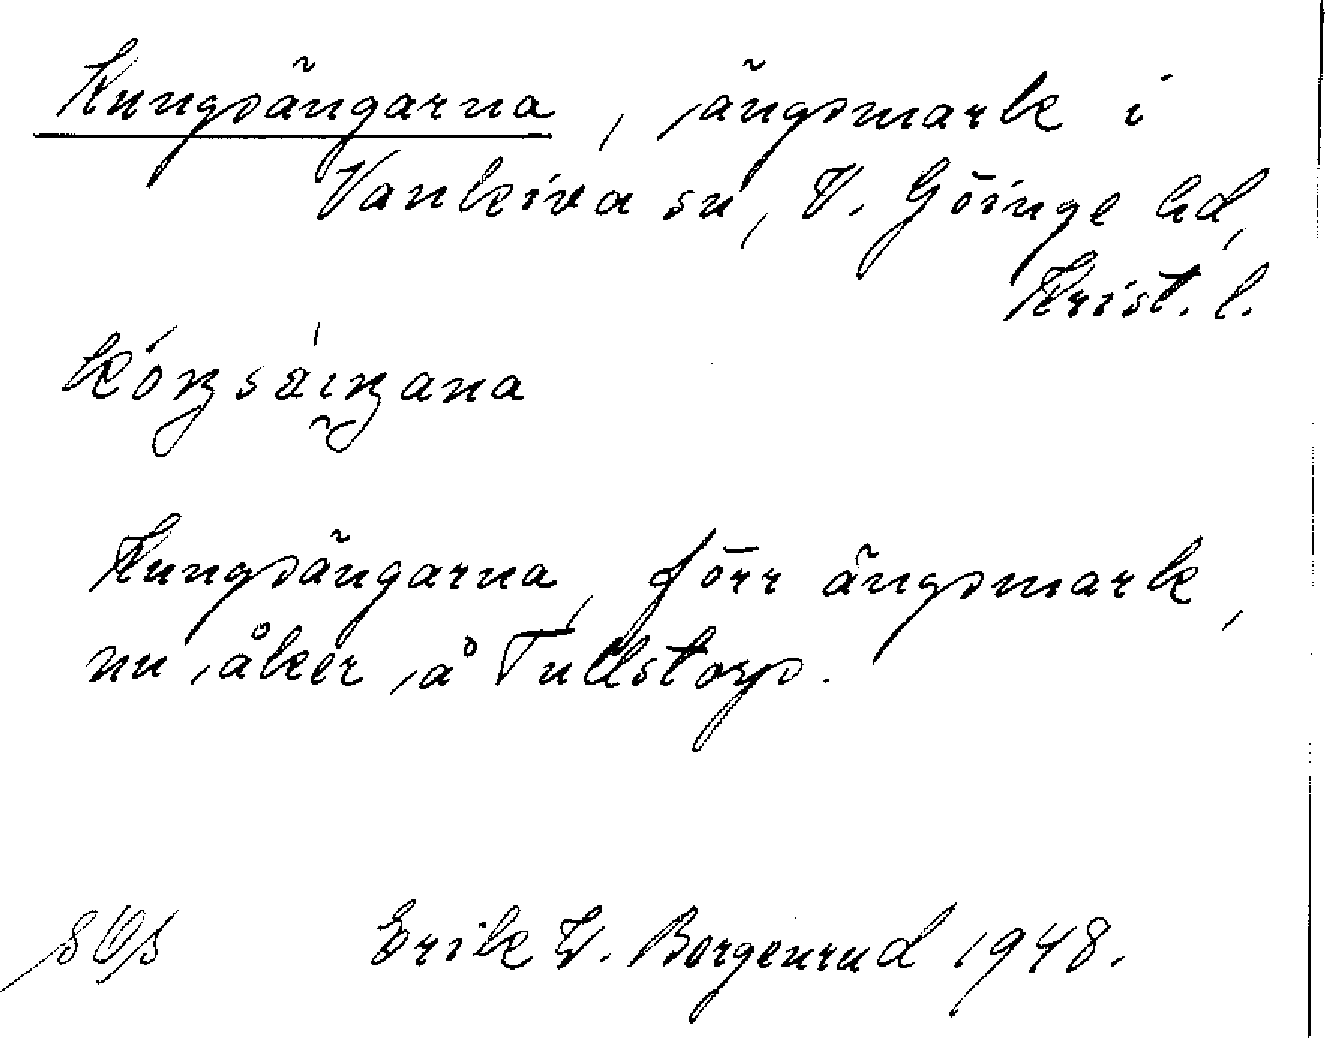 Kungsängarna, ängsmark i
Vankiva sn, V. Göinge hd,
Krist. l.
Kungsängarna, förr ängsmark,
nu åker å Tullstorp.
Erik W. Borgenrud 1948.